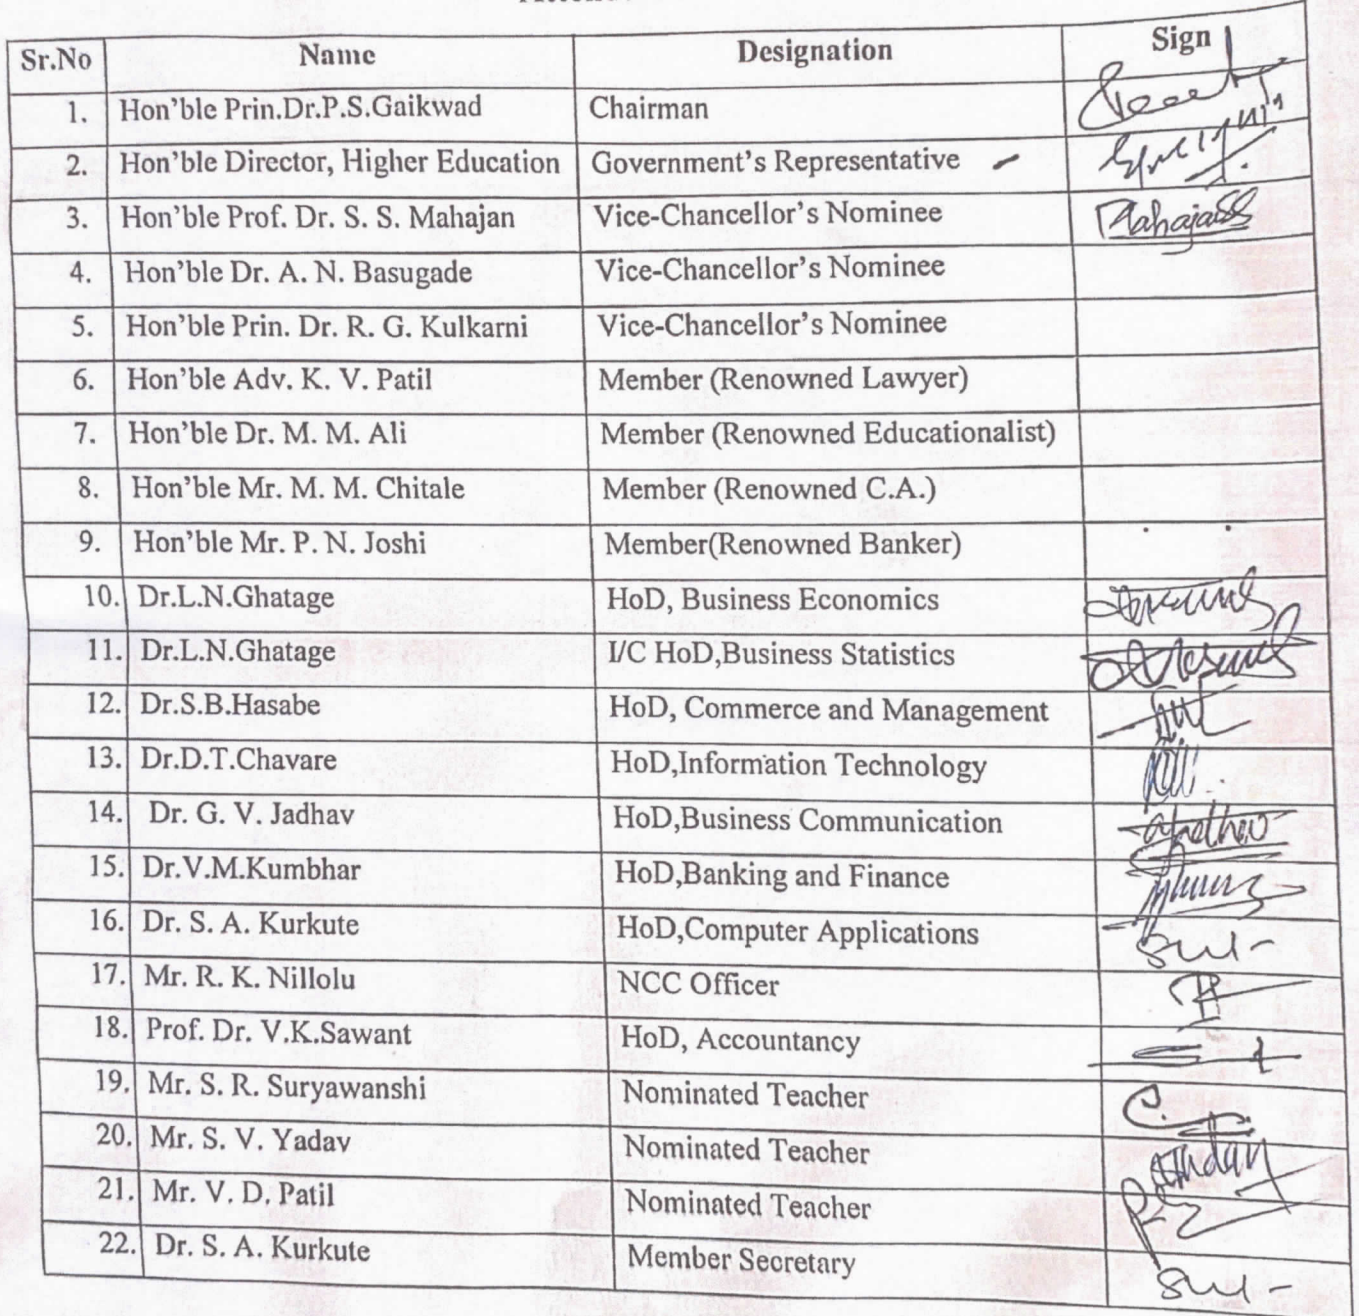 Sr.No Name Designation Sign
1. Hon'ble Prin.Dr.P.S.Gaikwad Chairman
2. Hon'ble Director, Higher Education Government's Representative
3. Hon'ble Prof. Dr. S. S. Mahajan Vice-Chancellor's Nominee MahajanSS
4. Hon'ble Dr. A. N. Basugade Vice-Chancellor's Nominee
5. Hon'ble Prin. Dr. R. G. Kulkarni Vice-Chancellor's Nominee
6. Hon'ble Adv. K. V. Patil Member (Renowned Lawyer)
7. Hon'ble Dr. M. M. Ali Member (Renowned Educationalist)
8. Hon'ble Mr. M. M. Chitale Member (Renowned C.A.)
9. Hon'ble Mr. P. N. Joshi Member(Renowned Banker)
10. Dr.L.N.Ghatage HoD, Business Economics
11. Dr.L.N.Ghatage I/C HoD,Business Statistics
12. Dr.S.B.Hasabe HoD, Commerce and Management
13. Dr.D.T.Chavare HoD,Information Technology
14. Dr. G. V. Jadhav HoD,Business Communication
15. Dr.V.M.Kumbhar HoD,Banking and Finance
16. Dr. S. A. Kurkute HoD,Computer Applications
17. Mr. R. K. Nillolu NCC Officer
18. Prof. Dr. V.K.Sawant HoD, Accountancy
19. Mr. S. R. Suryawanshi Nominated Teacher
20. Mr. S. V. Yadav Nominated Teacher
21. Mr. V. D. Patil Nominated Teacher
22. Dr. S. A. Kurkute Member Secretary